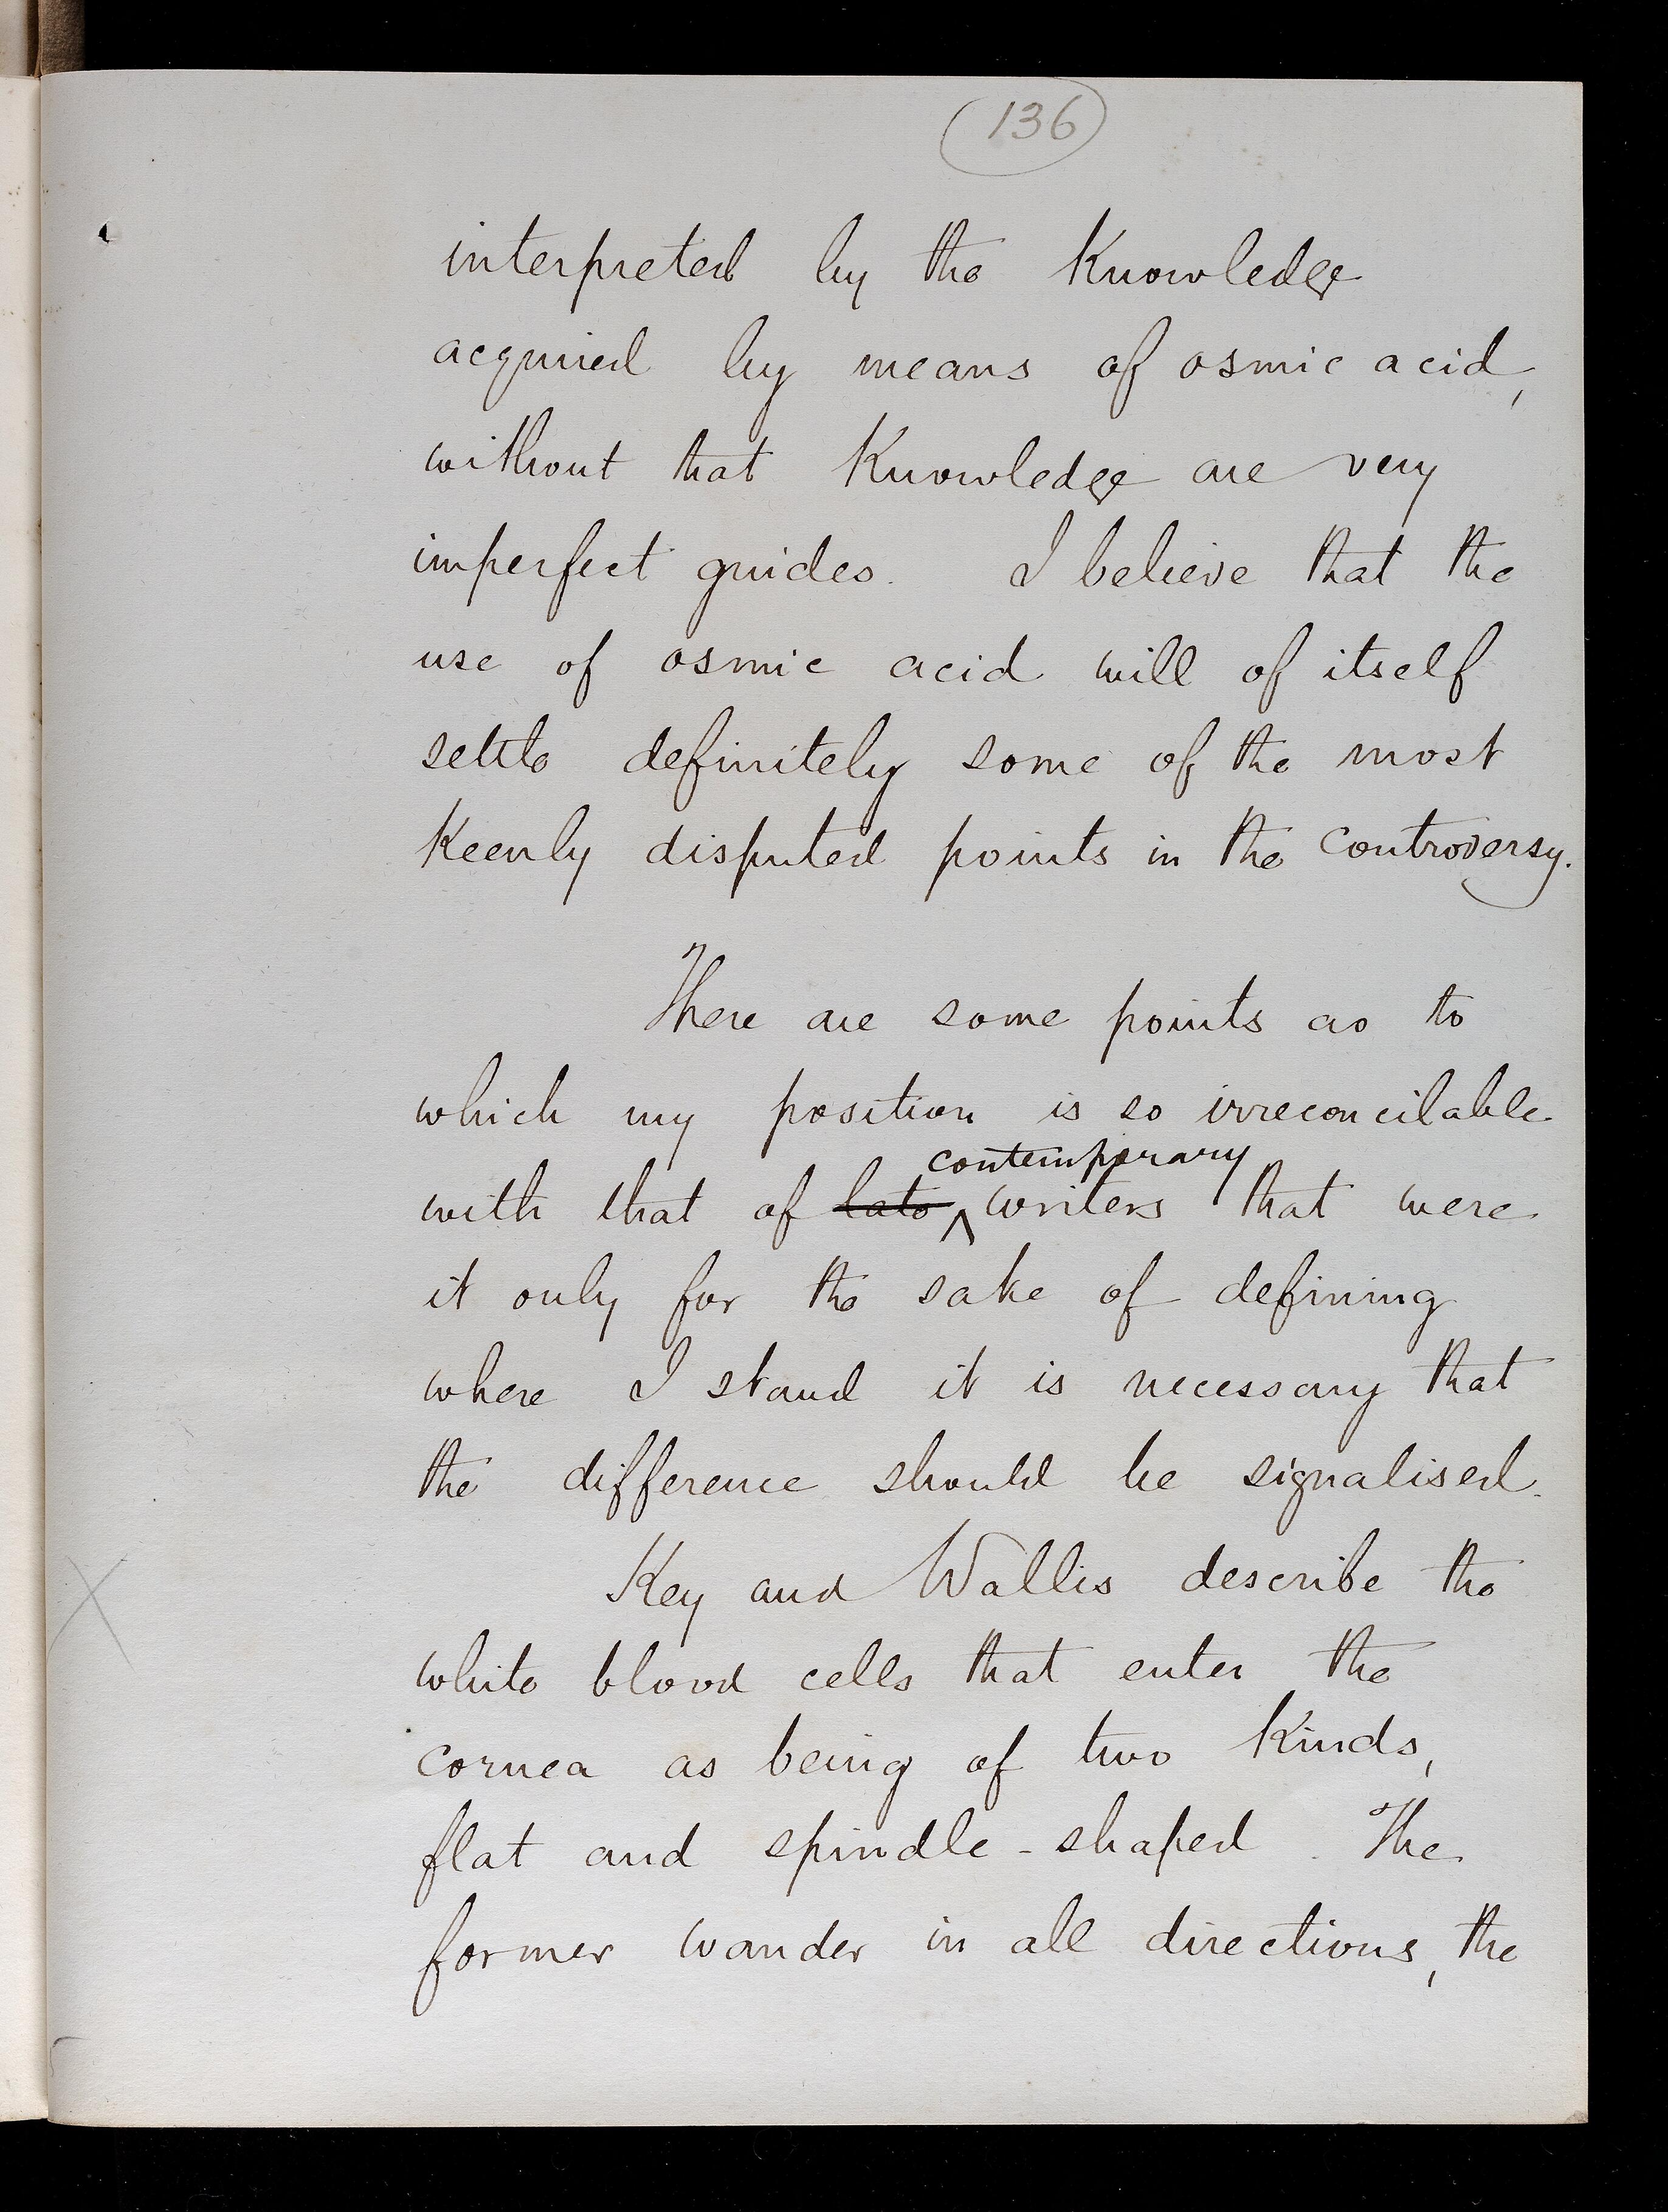 136
interpreted by the Knowledge
acquired by means of osmic acid,
without that Knowledge are very
imperfect guides. I believe that the
use of osmic acid will of itself
settle definitely some of the most
Keenly disputed points in the controversy.
There are some points as to
which my position is so irreconcilable
contemporary
with that of late writers that were
it only for the sake of defining
where I stand it is necessary that
the difference should be signalised.
Key and Wallis describe the
white blood cells that enter the
cornea as being of two Kinds,
flat and spindle-shaped. The
former wander in all directions, the